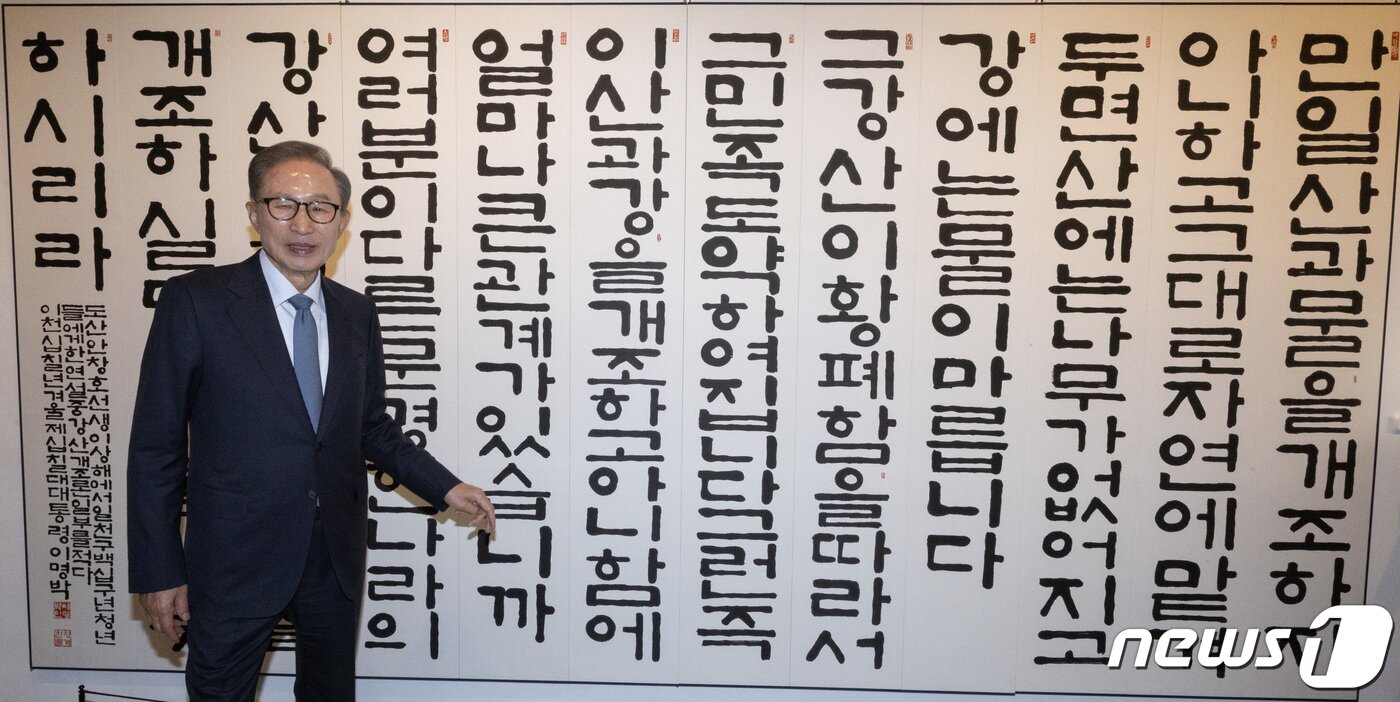 만일산과물을개조하지
아니하고그대로자연에맡겨
두면산에는나무가없어지고
강에는물이마릅니다
그강산이황폐함을따라서
그민족도약하여집니다그런즉
이산과강을개조하고아니함에
얼마나큰관계가있습니까
여러분이다른문명한나라의
강산
개조하실
하시리라
도산안창호선생이상해에서일천구백십구년청년
들에게한연설중강산개조론일부를적다
이천십칠년겨울제십칠대대통령이명박
news1